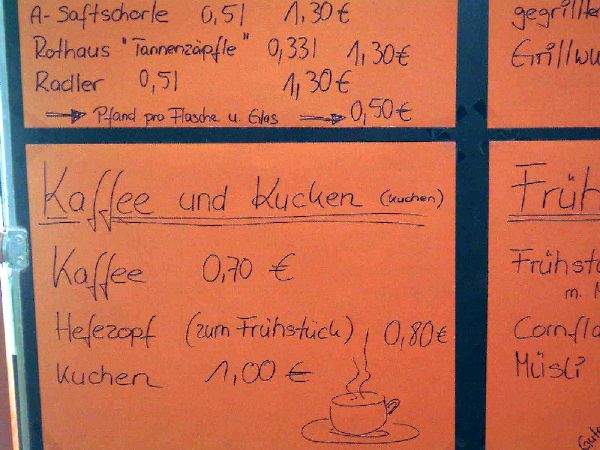 A-Saftschorle 0,5l 1,30€
Rothaus "Tannenzäpfle" 0,33l 1,30€
Radler 0,5l 1,30€
Pfand pro Flasche u. Glas 0,50€
Kaffee und Kucken (Kuchen)
Kaffee 0,70 €
Hefezopf (zum Frühstück) 0,80€
Kuchen 1,00 €
gegrillte
Grillwu
Früh
Frühst
m. M
Cornfla
Müsli
Gute